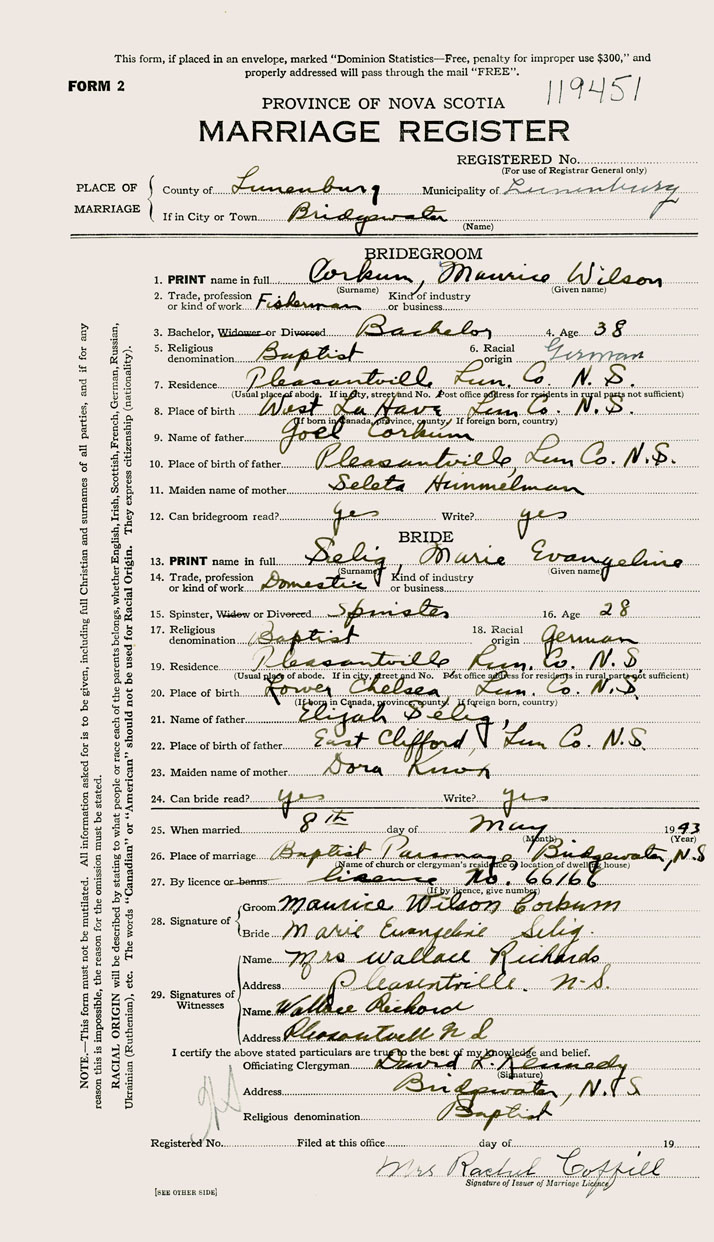 This form, if placed in an envelope, marked "Dominion Statistics—Free, penalty for improper use $300," and
properly addressed will pass through the mail "FREE".
FORM 2
119451
PROVINCE OF NOVA SCOTIA
MARRIAGE REGISTER
REGISTERED No.
(For use of Registrar General only)
PLACE OF MARRIAGE
County of Lunenburg Municipality of Lunenburg
If in City or Town Bridgewater
(Name)
BRIDEGROOM
1. PRINT name in full Corkum, Maurice Wilson
(Surname) (Given name)
2. Trade, profession or kind of work Fisherman Kind of industry or business
3. Bachelor, Widower or Divorced Bachelor 4. Age 38
5. Religious denomination Baptist 6. Racial origin German
7. Residence Pleasantville Lun. Co. N. S.
(Usual place of abode. If in city, street and No. Post office address for residents in rural parts not sufficient)
8. Place of birth West La Have Lun Co. N. S.
(If born in Canada, province, county. If foreign born, country)
9. Name of father Joel Corkum
10. Place of birth of father Pleasantville, Lun Co. N.S.
11. Maiden name of mother Seleta Hummelman
12. Can bridegroom read? yes Write? yes
BRIDE
13. PRINT name in full Selig, Marie Evangeline
(Surname) (Given name)
14. Trade, profession or kind of work Domestic Kind of industry or business
15. Spinster, Widow or Divorced Spinster 16. Age 28
17. Religious denomination Baptist 18. Racial origin German
19. Residence Pleasantville, Lun. Co. N. S.
(Usual place of abode. If in city, street and No. Post office address for residents in rural parts not sufficient)
20. Place of birth Lower Chelsea, Lun. Co. N. S.
(If born in Canada, province, county. If foreign born, country)
21. Name of father Elijah Selig
22. Place of birth of father East Clifford, Lun Co. N.S.
23. Maiden name of mother Dora Knox
24. Can bride read? yes Write? yes
25. When married 8th day of May 1943
(Month) (Year)
26. Place of marriage Baptist Parsonage, Bridgewater, N.S
(Name of church or clergyman's residence or location of dwelling house)
27. By licence or banns licence No. 66166
(If by licence, give number)
28. Signature of Groom Maurice Wilson Corkum
Bride Marie Evangeline Selig.
29. Signatures of Witnesses
Name Mrs Wallace Richards
Address Pleasentville. N-S.
Name Wallace Richard
Address Pleasantvell N S
I certify the above stated particulars are true to the best of my knowledge and belief.
Officiating Clergyman David L. Kennedy
(Signature)
Address Bridgewater, N.S
Religious denomination Baptist
Registered No. Filed at this office day of 19
Mrs Rachel Coffill
Signature of Issuer of Marriage Licence
[SEE OTHER SIDE]
NOTE.—This form must not be mutilated. All information asked for is to be given, including full Christian and surnames of all parties, and if for any
reason this is impossible, the reason for the omission must be stated.
RACIAL ORIGIN will be described by stating to what people or race each of the parents belongs, whether English, Irish, Scottish, French, German, Russian,
Ukrainian (Ruthenian), etc. The words "Canadian" or "American" should not be used for Racial Origin. They express citizenship (nationality).